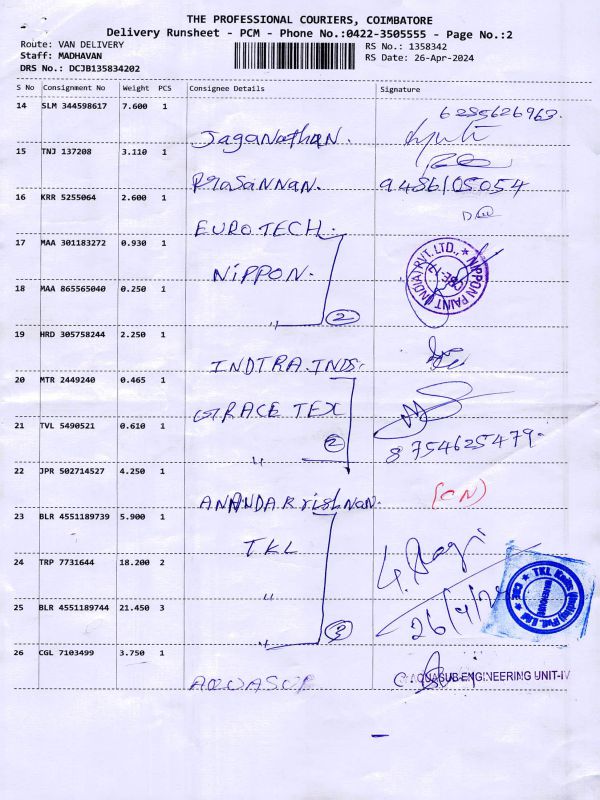 THE PROFESSIONAL COURIERS, COIMBATORE
Delivery Runsheet - PCM - Phone No.:0422-3505555 - Page No.:2
Route: VAN DELIVERY
RS No.: 1358342
Staff: MADHAVAN
RS Date: 26-Apr-2024
DRS No.: DCJB135834202
S No Consignment No Weight PCS Consignee Details Signature
14 SLM 344598617 7.600 1
6285626963.
Jaganathan.
15 TNJ 137208 3.110 1
Prasannan. 9486105054
16 KRR 5255064 2.600 1
EUROTECH.
17 MAA 301183272 0.930 1
NiPPON.
NIPPON PAINT (INDIA) PVT. LTD.,
18 MAA 865565040 0.250 1
" 2
19 HRD 305758244 2.250 1
INDTRA.INDS.
20 MTR 2449240 0.465 1
GRACE TEX
21 TVL 5490521 0.610 1
" 2
8754625479.
22 JPR 502714527 4.250 1
ANANDAKrishnan. (CN)
23 BLR 4551189739 5.900 1
TKL
24 TRP 7731644 18.200 2
"
25 BLR 4551189744 21.450 3
" 3
26/4/2
26 CGL 7103499 3.750 1
AQUASUB
AQUASUB ENGINEERING UNIT-IV